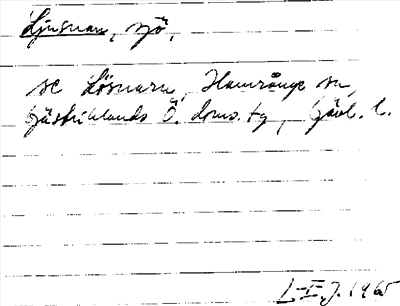 Ljusnaren, sjö,
se Lösnaren, Hamrånge sn,
Gästriklands Ö. doms. tg, Gävl. l.
L-E. J. 1965